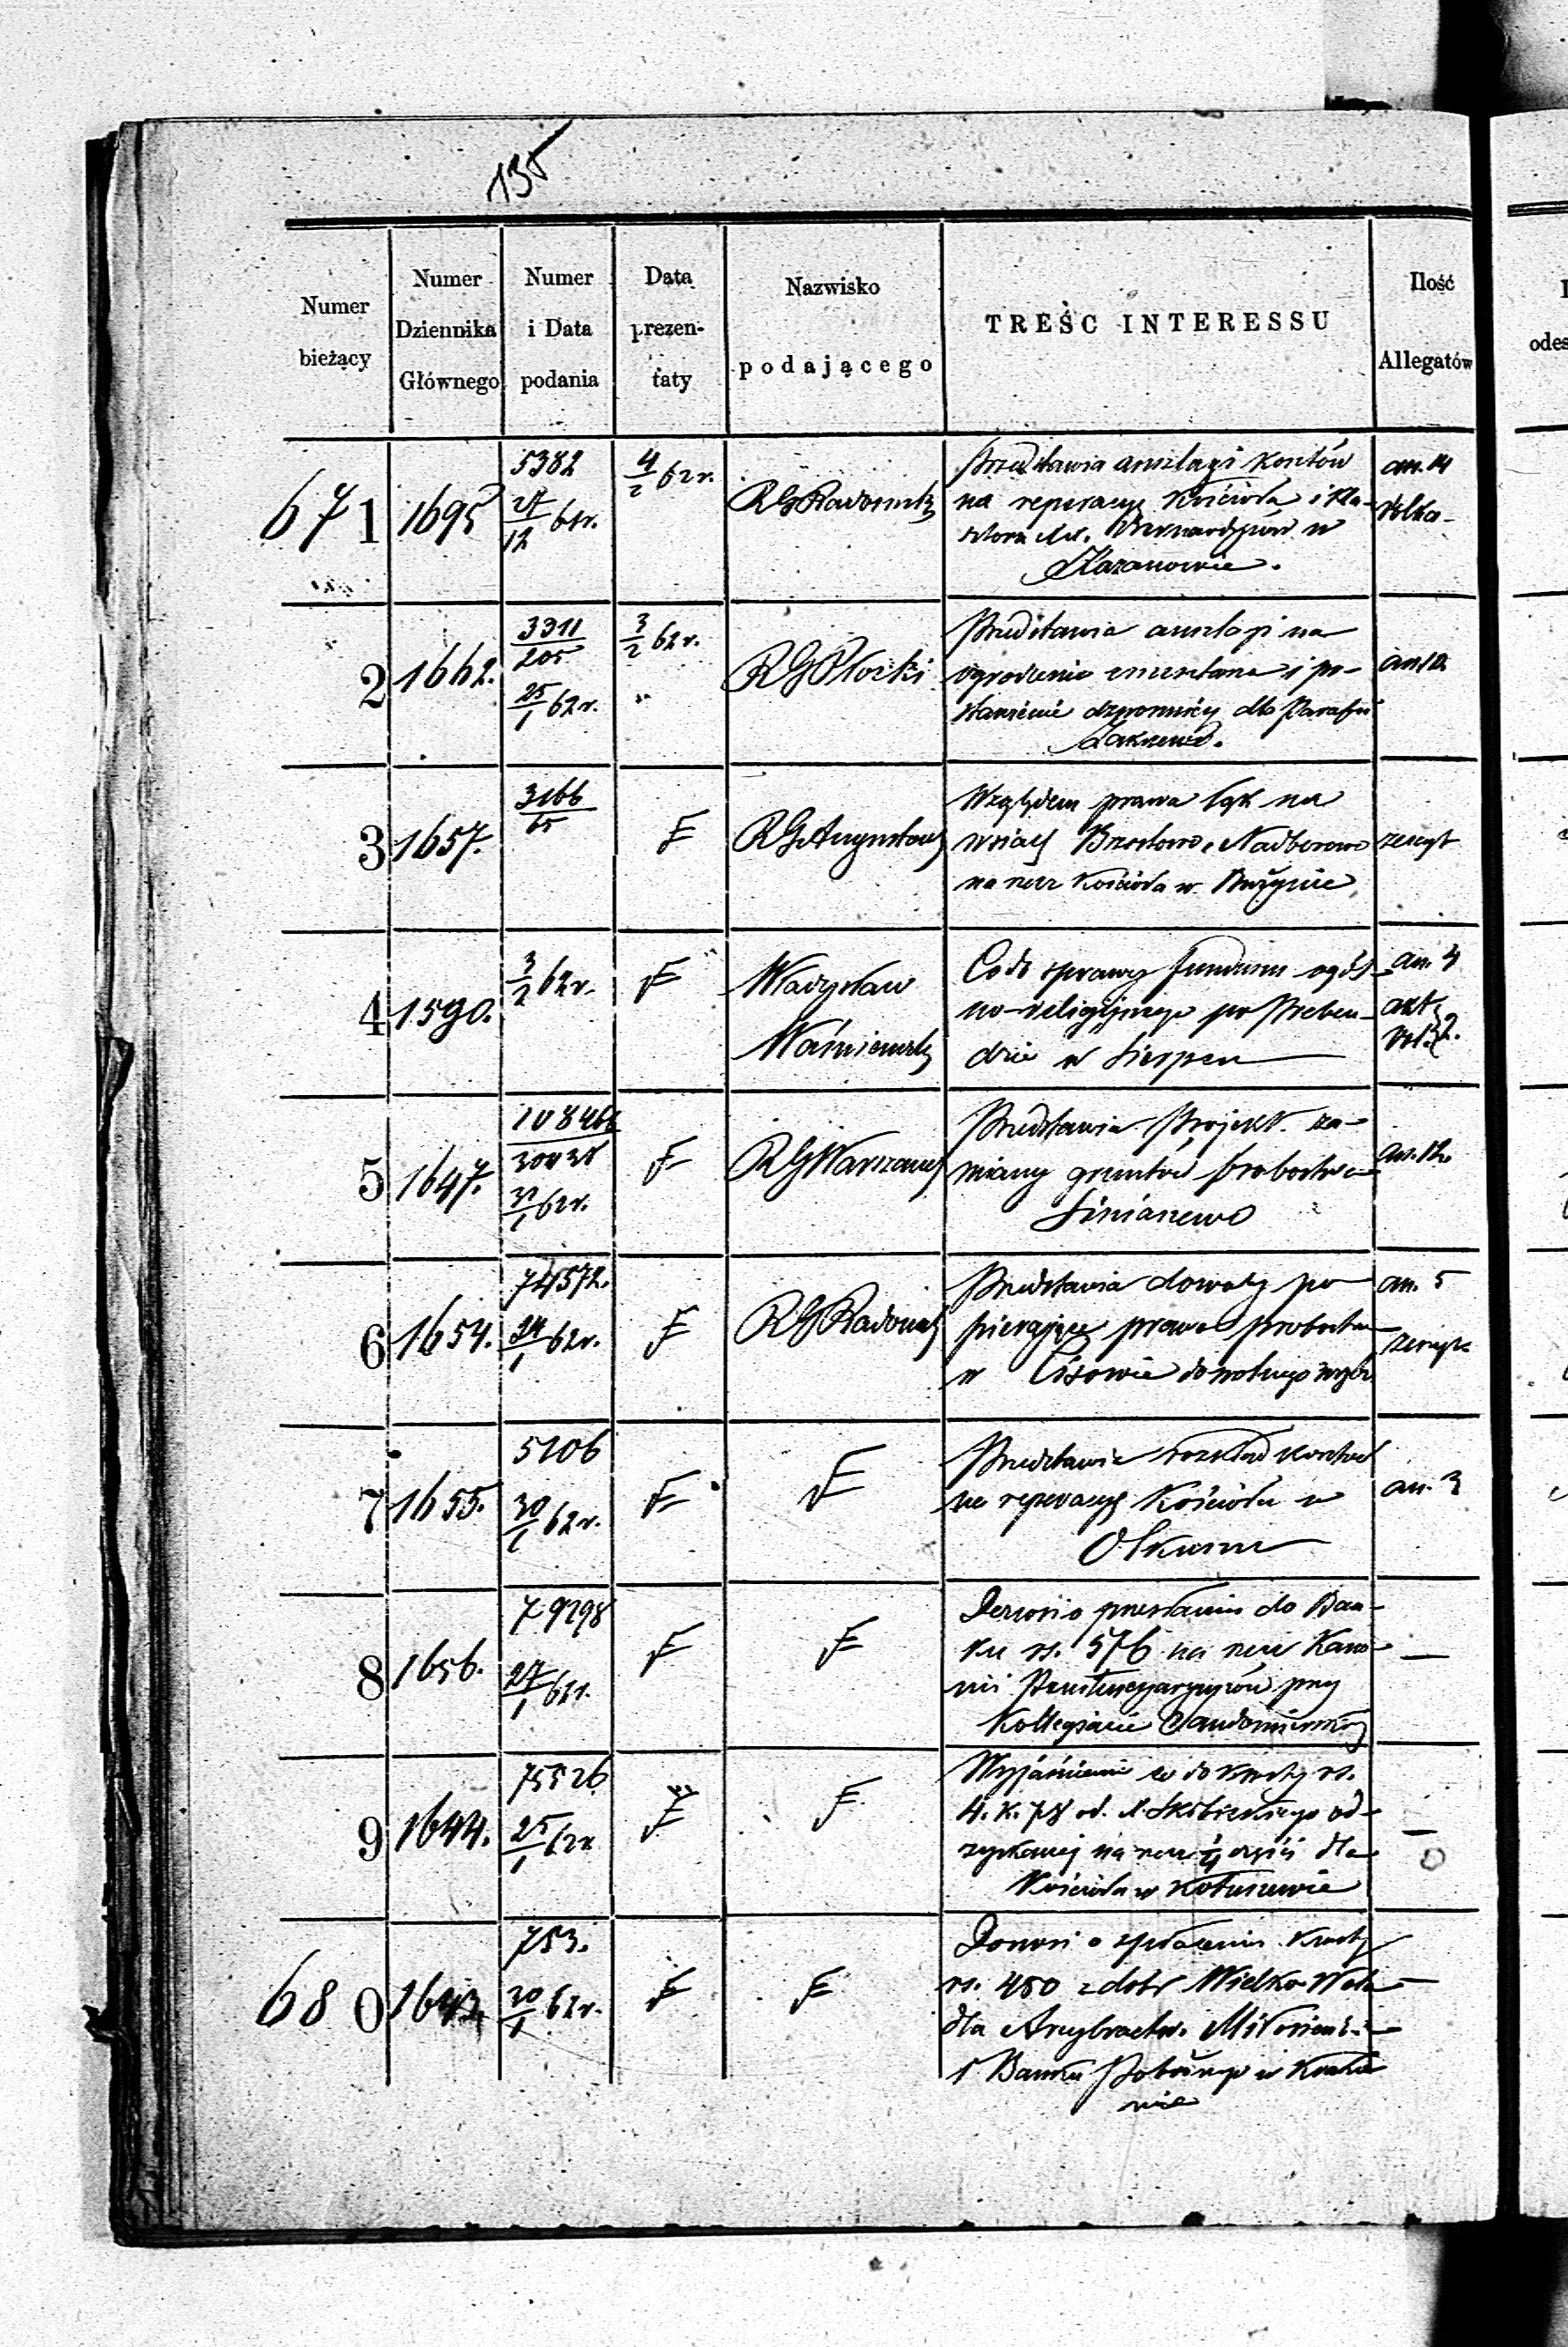 135
Numer bieżący
Numer Dziennika Głównego
Numer i Data podania
Data prezentaty
Nazwisko podającego
TREŚĆ INTERESSU
Ilość Allegatów
671
1695
5382
27/12 61r.
4/2 62r.
RG Radomski
Przedstawia anszlagi kosztów
na reperacyę Kościoła i Kla-
sztoru XX. Bernardynów w
Kazanowie.
an. 14
2
1662.
3311/205
25/1 62r.
3/2 62r.
RG Płocki
Przedstawia anszlagi na
ogrodzenie cmentarza i po-
stawienie dzwonnicy dla Parafii
an 10.
3
1657.
3166/65
F
RG Augustows
Względem prawa łąk na
wsiach Brzostowo, Nadborowo
na rzecz Kościoła w Burzynie
zeszyt
4
1590.
3/2 62r.
F
Władysław
Waśniewski
Co do sprawy funduszu ogól-
no-religijnego po Preben-
dzie w Sierpcu
an. 4
akt
vol. 2.
5
1647.
108466
30/1 62r.
F
RG Warszaws
Przedstawia Projekt za-
miany gruntów probostwa
Siniarzewo
an. 12.
6
1654.
74572.
24/1 62r.
F
RG Radomsk
Przedstawia dowody po
pierające prawo probostwa
w Cisowie do wolnego wręb
an. 5
zeszyt
7
1655.
5106
30/1 62r.
F
F
Przedstawia rozkład kosztów
na reperacyę Kościoła w
Olkuszu
an. 3
8
1656.
79298
27/1 62r.
F
F
Donosi o przesłaniu do Ban-
ku rs. 576 na rzecz Kano-
nii Penitencyaryuszów przy
Kollegiacie Sandomierskiej
—
9
1644.
75526
25/1 62r
F
F
Wyjaśnienie co do kwoty rs.
4. k. 78 od. od-
zyskanej na rzecz 1/4 części dla
Kościoła w Kotuszowie
—
680
1643
753.
20/1 62r.
F
F
Donosi o spłaceniu kwoty
rs. 450 z dóbr Wielka Wola
dla Arcybractw. Miłosierdzia
i Banku Pobożnego w Krako
wie
—